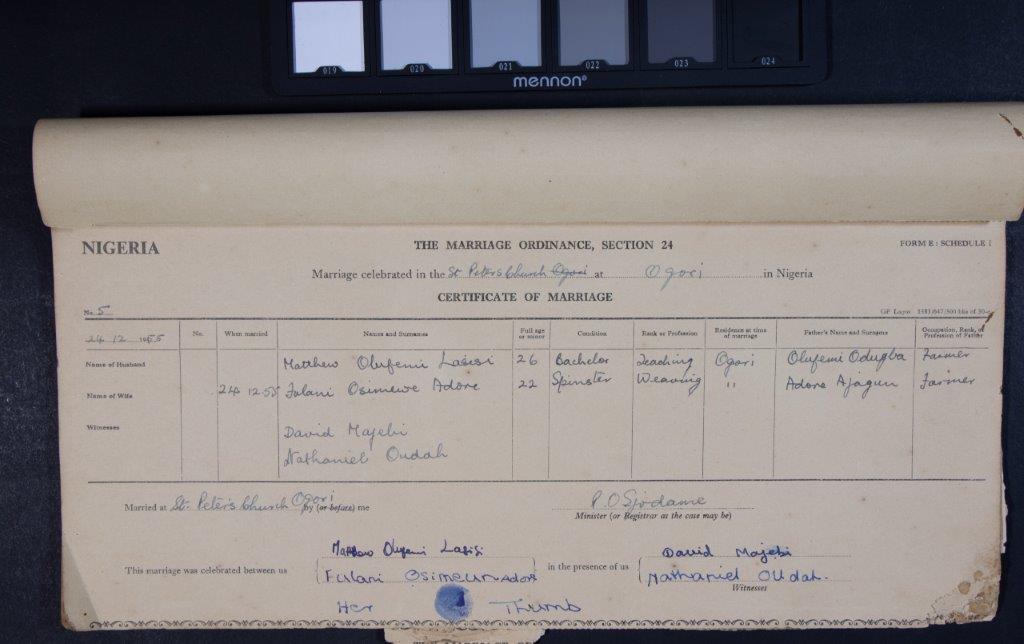 019 020 021 022 023 024
mennon®
NIGERIA
THE MARRIAGE ORDINANCE, SECTION 24
FORM E : SCHEDULE I
Marriage celebrated in the St Peters Church Ogori at Ogori in Nigeria
CERTIFICATE OF MARRIAGE
No. 5
24 12 1955
No. When married Names and Surnames Full age or minor Condition Rank or Profession Residence at time of marriage Father's Name and Surname Occupation, Rank, or Profession of Father
Name of Husband Matthew Olufemi Lasisi 26 Bachelor Teaching Ogori Olufemi Odugba Farmer
Name of Wife 24 12.55 Fulani Osimewe Adore 22 Spinster Weaving " Adore Ajagun Farmer
Witnesses
David Majebi
Nathaniel Oudah
Married at St. Peter's Church Ogori by (or before) me
Minister (or Registrar as the case may be)
Matthew Olufemi Lasisi David Majebi
This marriage was celebrated between us Fulani in the presence of us Nathaniel Oudah.
Witnesses
Her Thumb